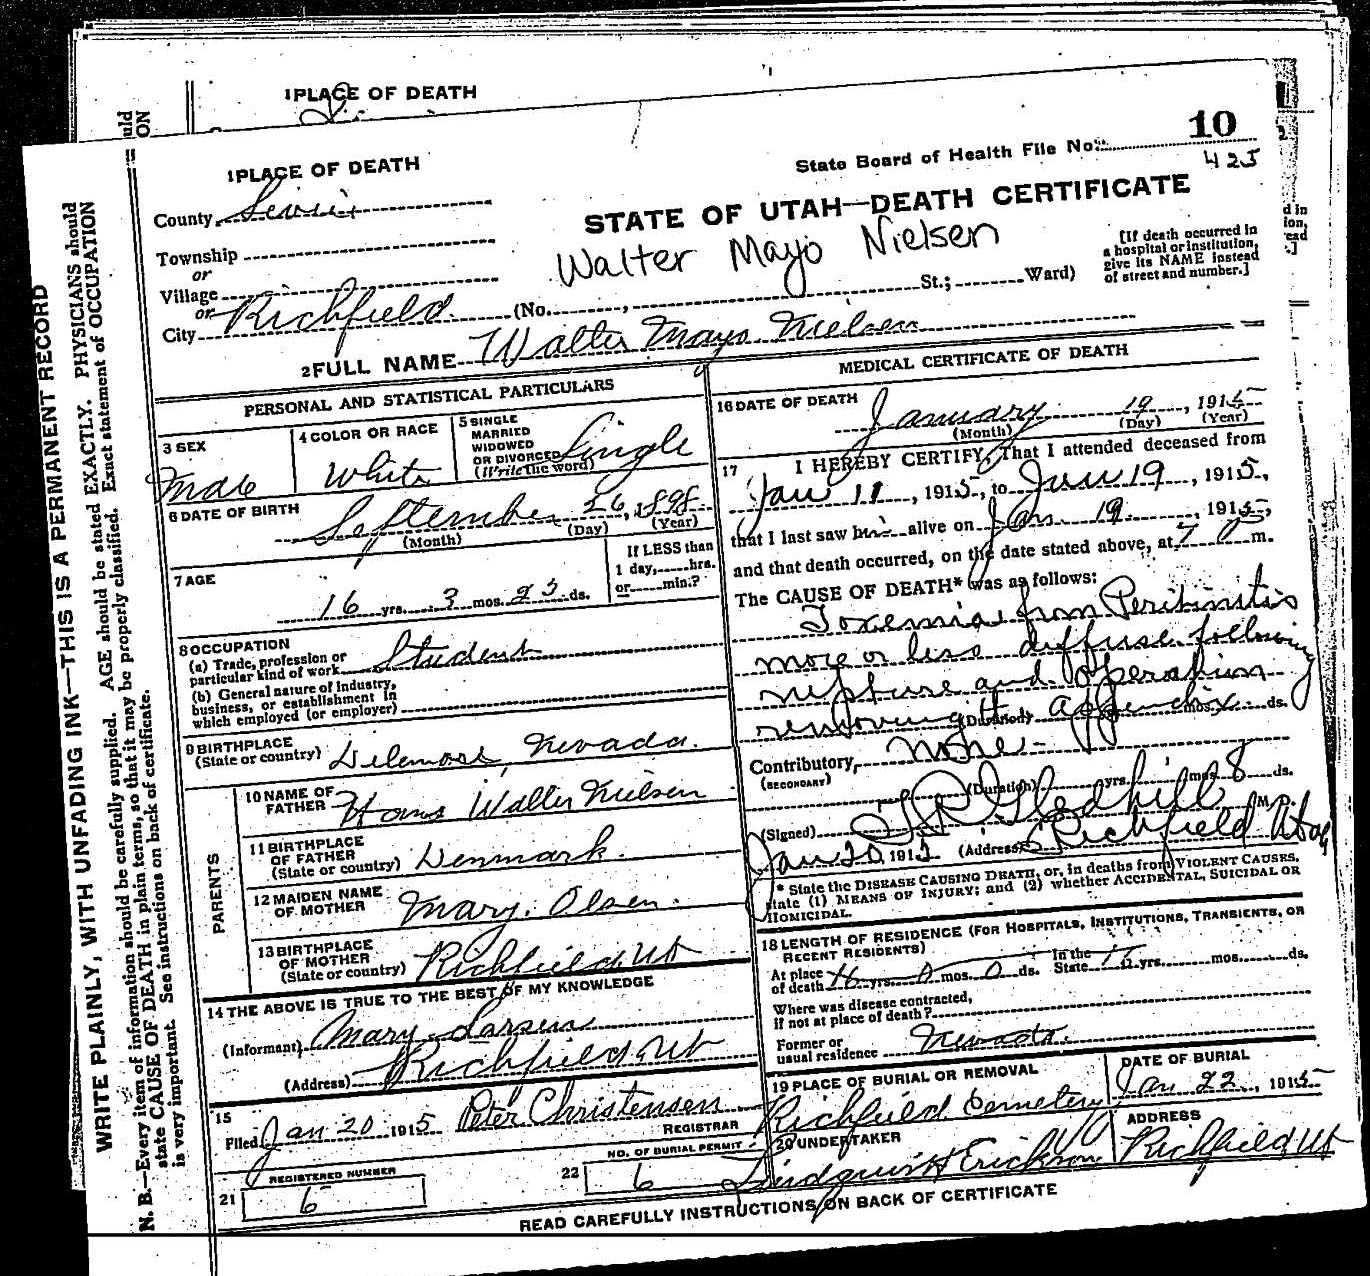 1 PLACE OF DEATH
10
State Board of Health File No.
425
1 PLACE OF DEATH
County Sevier
STATE OF UTAH—DEATH CERTIFICATE
Walter Mayo Nielsen
Township
or
Village
or
City Richfield (No. , St.; Ward)
[If death occurred in
a hospital or institution,
give its NAME instead
of street and number.]
2 FULL NAME Walter Mayo Nielsen
PERSONAL AND STATISTICAL PARTICULARS
3 SEX
Male
4 COLOR OR RACE
White
5 SINGLE
MARRIED
WIDOWED
OR DIVORCED
(Write the word)
Single
6 DATE OF BIRTH
September 26, 1898
(Month) (Day) (Year)
7 AGE
16 yrs. 3 mos. 23 ds.
If LESS than
1 day, hrs.
or min.?
8 OCCUPATION
(a) Trade, profession or
particular kind of work Student
(b) General nature of industry,
business, or establishment in
which employed (or employer)
9 BIRTHPLACE
(State or country) Delemar, Nevada.
PARENTS
10 NAME OF
FATHER Hans Walter Nielsen
11 BIRTHPLACE
OF FATHER
(State or country) Denmark.
12 MAIDEN NAME
OF MOTHER Mary Olsen.
13 BIRTHPLACE
OF MOTHER
(State or country) Richfield Ut
14 THE ABOVE IS TRUE TO THE BEST OF MY KNOWLEDGE
(Informant) Mary Larsen
(Address) Richfield Ut
15
Filed Jan 20 1915 Peter Christensen
REGISTRAR
21 REGISTERED NUMBER
6
22 NO. OF BURIAL PERMIT
6
MEDICAL CERTIFICATE OF DEATH
16 DATE OF DEATH
January 19, 1915
(Month) (Day) (Year)
17 I HEREBY CERTIFY, That I attended deceased from
Jan 11, 1915, to Jan 19, 1915,
that I last saw him alive on Jan. 19, 1915,
and that death occurred, on the date stated above, at 7 m.
The CAUSE OF DEATH* was as follows:
Toxemia from Peritinitis
more or less diffuse following
rupture and operation
removing the appendix
(Duration) mos. ds.
Contributory none
(SECONDARY)
(Duration) yrs. mos. 8 ds.
(Signed) Gledhill M. D.
Jan 20 191 (Address) Richfield Utah
* State the DISEASE CAUSING DEATH, or, in deaths from VIOLENT CAUSES,
state (1) MEANS OF INJURY; and (2) whether ACCIDENTAL, SUICIDAL OR
HOMICIDAL.
18 LENGTH OF RESIDENCE (FOR HOSPITALS, INSTITUTIONS, TRANSIENTS, OR
RECENT RESIDENTS)
At place
of death 16 yrs. 0 mos. 0 ds. In the
State yrs. mos. ds.
Where was disease contracted,
if not at place of death?
Former or
usual residence Nevada.
19 PLACE OF BURIAL OR REMOVAL
Richfield Cemetery
DATE OF BURIAL
Jan 22, 1915
20 UNDERTAKER
Lindquist Erickson
ADDRESS
Richfield Ut
READ CAREFULLY INSTRUCTIONS ON BACK OF CERTIFICATE
WRITE PLAINLY, WITH UNFADING INK—THIS IS A PERMANENT RECORD
N. B.—Every item of information should be carefully supplied. AGE should be stated EXACTLY. PHYSICIANS should
state CAUSE OF DEATH in plain terms, so that it may be properly classified. Exact statement of OCCUPATION
is very important. See instructions on back of certificate.